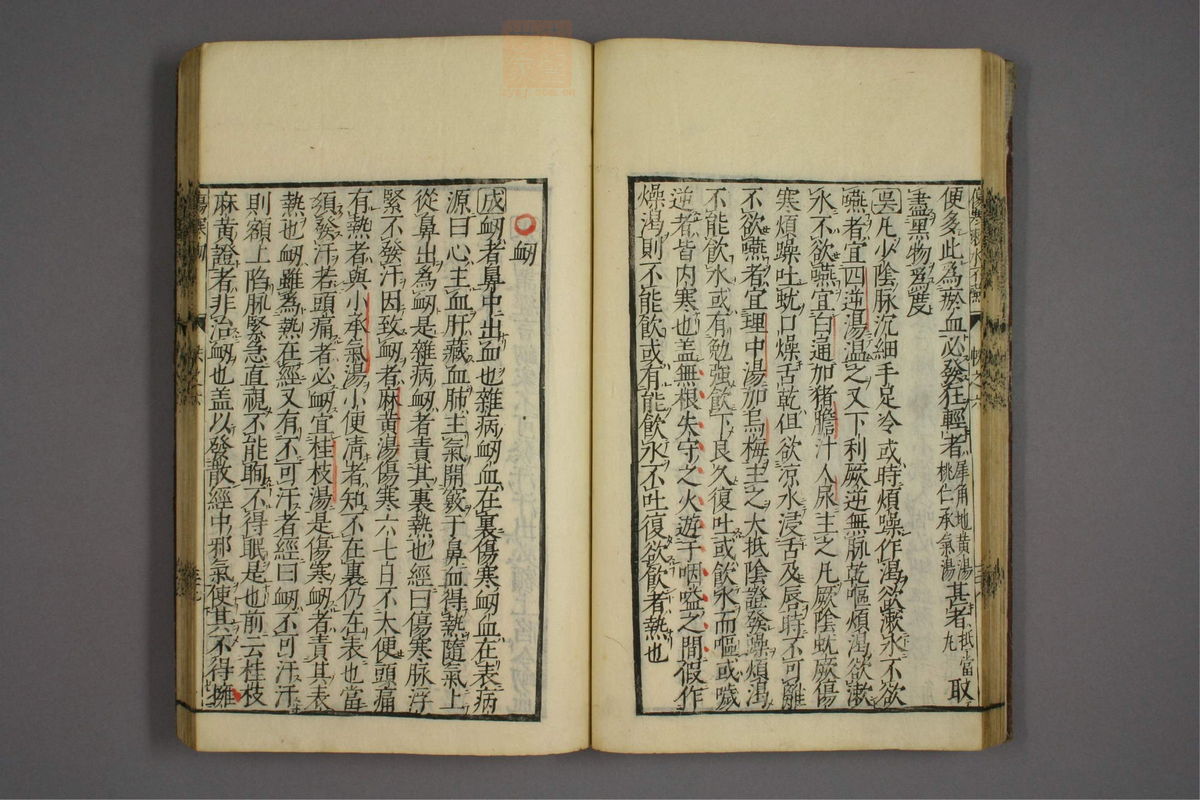 便多此為瘀血必發狂輕者犀角地黃湯桃仁承氣湯甚者抵當丸取
盡黑物為度
吳凡少陰脉沉細手足冷或時煩噪作渴欲漱水不欲
嚥者宜四逆湯温之又下利厥逆無脉乾嘔煩渴欲漱
水不欲嚥宜白通加猪膽汁人尿主之凡厥陰蚘厥傷
寒煩躁吐蚘口燥舌乾但欲凉水浸舌及唇時不可離
不欲嚥者宜理中湯加烏梅主之大抵陰證發燥煩渴
不能飲水或有勉強飲下良久復吐或飲水而嘔或噦
逆者皆内寒也盖無根失守之火遊于咽嗌之間假作
燥渴則不能飲或有能飲水不吐復欲飲者熱也
衂
成衂者鼻中出血也雜病衂血在裏傷寒衂血在表病
源曰心主血肝藏血肺主氣開竅于鼻血得熱隨氣上
從鼻出為衂是雜病衂者責其裏熱也經曰傷寒脉浮
緊不發汗因致衂者麻黃湯傷寒六七日不大便頭痛
有熱者與小承氣湯小便淸者知不在裏仍在表也當
須發汗若頭痛者必衂宜桂枝湯是傷寒衂者責其表
熱也衂雖為熱在經又有不可汗者經曰衂不可汗汗
則額上陷脉緊急直視不能眴不得眠是也前云桂枝
麻黃證者非治衂也盖以發散經中邪氣使其不得擁
傷寒